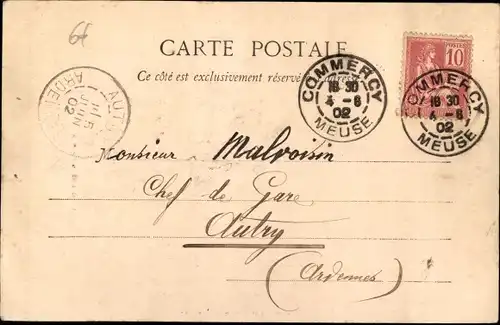 6f
CARTE POSTALE
Ce côté est exclusivement réservé
COMMERCY
18 30
4 - 6
02
MEUSE
POSTES
10
COMMERCY
18 30
4 - 6
02
MEUSE
AUT
5
JUIN
02
ARDE
Monsieur Malvoisin
Chef de Gare
Autry
(Ardennes)